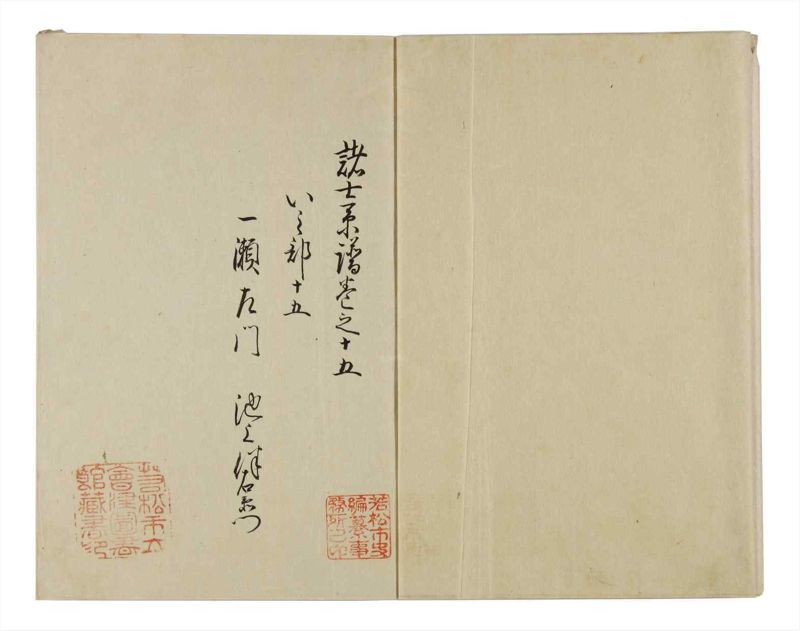 諸士系譜巻之十五
い之部十五
一瀬左門
池上 右衛門
若松市史
編纂事
務所之印
若松市立
會津圖書
館藏書印